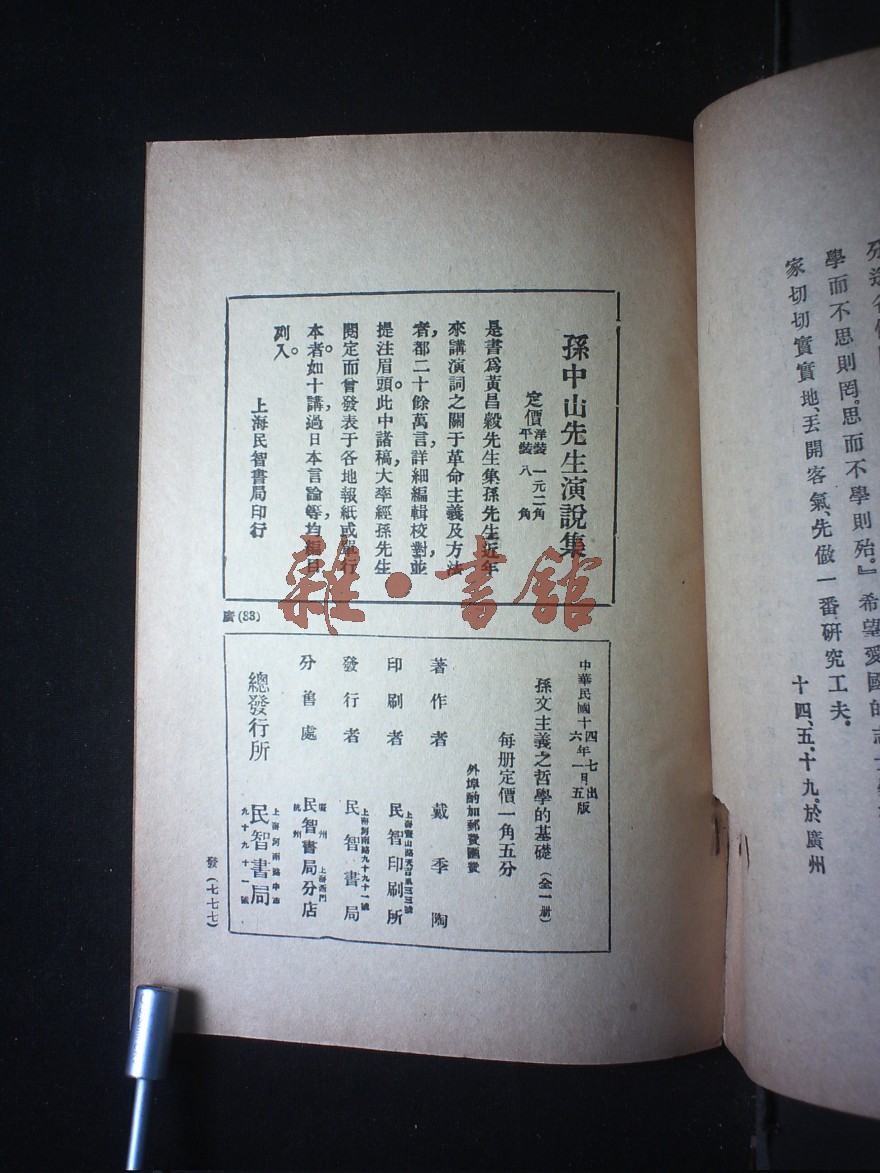 學而不思則罔。思而不學則殆。』希望愛國的志
家切切實實地、丟開客氣、先做一番研究工夫。
十四、五、十九。於廣州
孫中山先生演說集
定價 洋裝 一元二角
平裝 八角
是書爲黃昌穀先生集孫先生近年
來講演詞之關于革命主義及方法
者，都二十餘萬言，詳細編輯校對，並
提注眉頭。此中諸稿，大率經孫先生
閱定而曾發表于各地報紙或單行
本者。如十講，過日本言論，等均編目
列入。
上海民智書局印行
廣(83)
中華民國十四年七月出版
十六年一月五版
孫文主義之哲學的基礎（全一册）
每册定價一角五分
外埠酌加郵費匯費
著作者 戴季陶
印刷者 民智印刷所
發行者 民智書局
上海河南路九十九十一號
分售處 民智書局分店
總發行所 民智書局
上海河南路中市
九十九十一號
發(七七七)
雜·書館